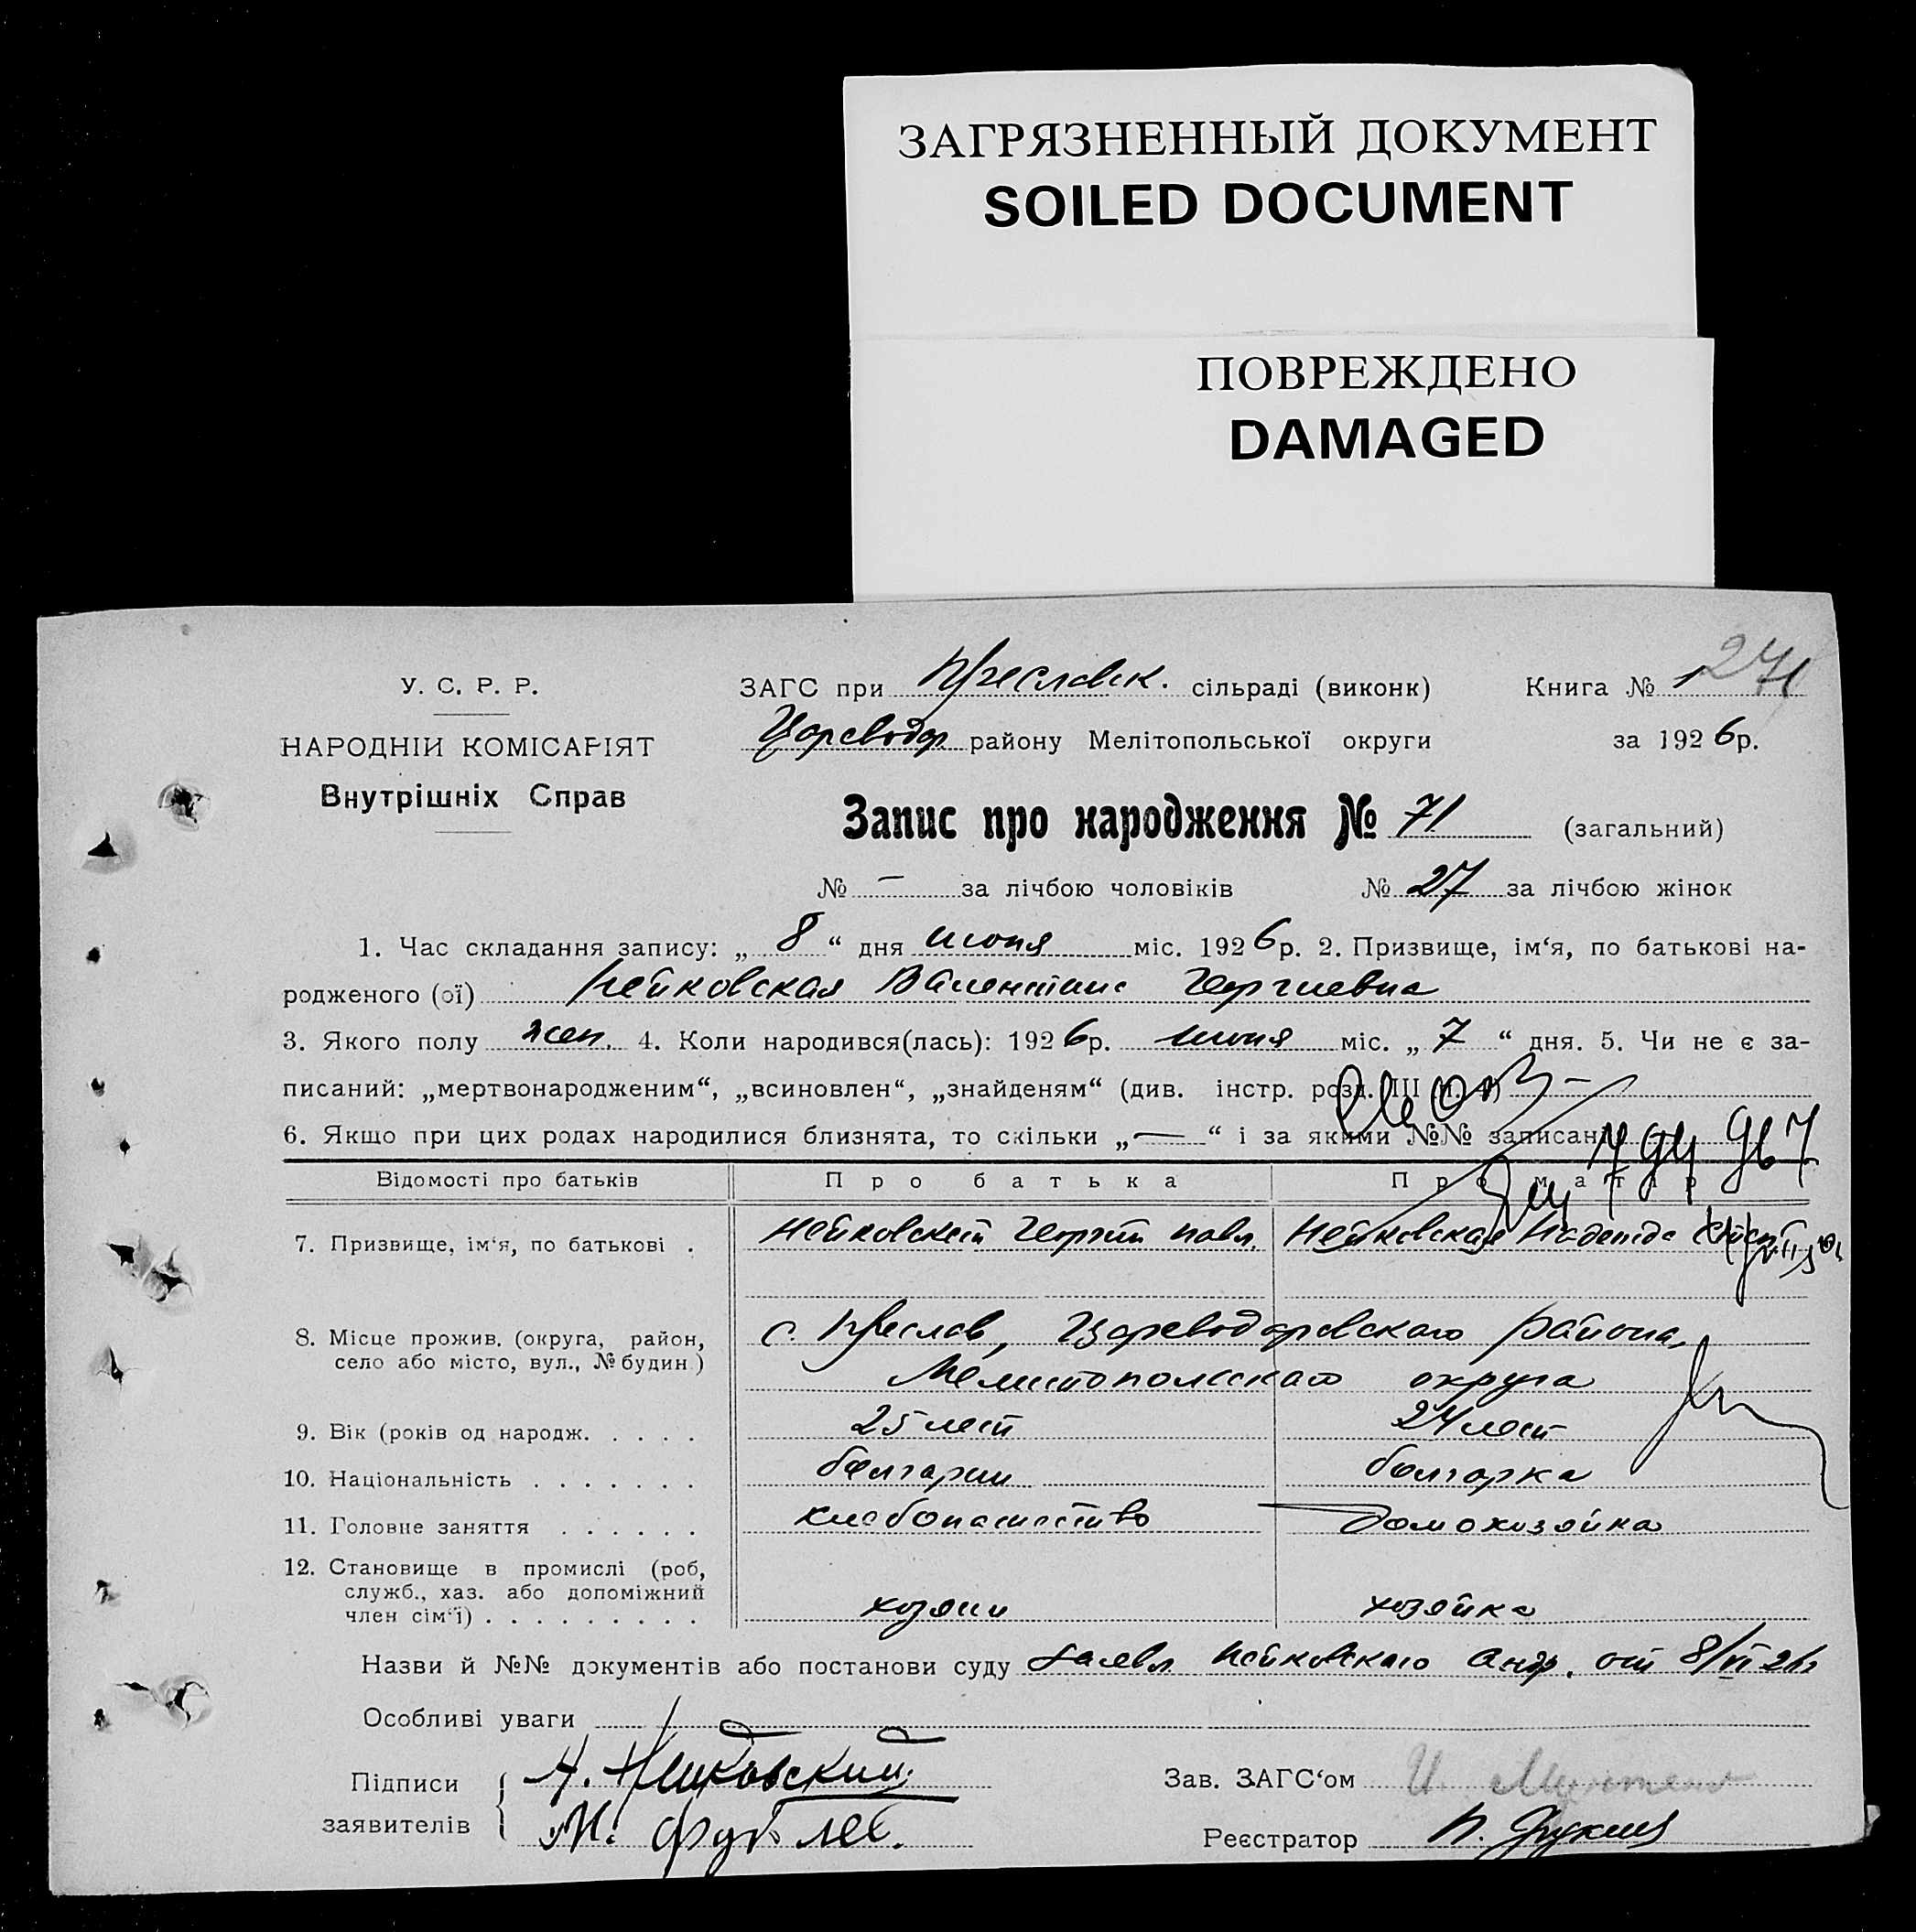 ЗАГРЯЗНЕННЫЙ ДОКУМЕНТ
SOILED DOCUMENT
ПОВРЕЖДЕНО
DAMAGED
У. С. Р. Р.
НАРОДНІЙ КОМІСАРІЯТ
Внутрішніх Справ
ЗАГС при Преславск. сільраді (виконк) Книга № 1 271
Цареводар району Мелітопольської округи за 1926р.
Запис про народження № 71 (загальний)
№ — за лічбою чоловіків № 27 за лічбою жінок
1. Час складання запису: „ 8 “ дня июня міс. 1926р. 2. Призвище, ім‘я, по батькові на-
родженого (ої) Нейковская Валентина Георгиевна
3. Якого полу жен. 4. Коли народився(лась): 1926р. июня міс. „ 7 “ дня. 5. Чи не є за-
писаний: „мертвонародженим“, „всиновлен“, „знайденям“ (див. інстр. розд. III п. 4) —
6. Якщо при цих родах народилися близнята, то скільки „—“ і за якими №№ записані
Відомості про батьків Про батька Про матір
7. Призвище, ім‘я, по батькові . Нейковский Георгий павл. Нейковская Надежда
8. Місце прожив. (округа, район,
село або місто, вул., № будин)
с. Преслав, Цареводаровского района,
Мелитопольского округа
9. Вік (років од народж. . . . . 25 лет 24 лет
10. Національність . . . . . . . болгарин болгарка
11. Головне заняття . . . . . . хлебопашество домохозяйка
12. Становище в промислі (роб,
служб., хаз. або допоміжний
член сім‘ї) . . . . . . . . . хозяин хозяйка
Назви й №№ документів або постанови суду Заявл Нейковского Андр. от 8/VI 26г
Особливі уваги
Підписи
заявителів
А. Нейковский
М.
Зав. ЗАГС‘ом И.
Реєстратор П.